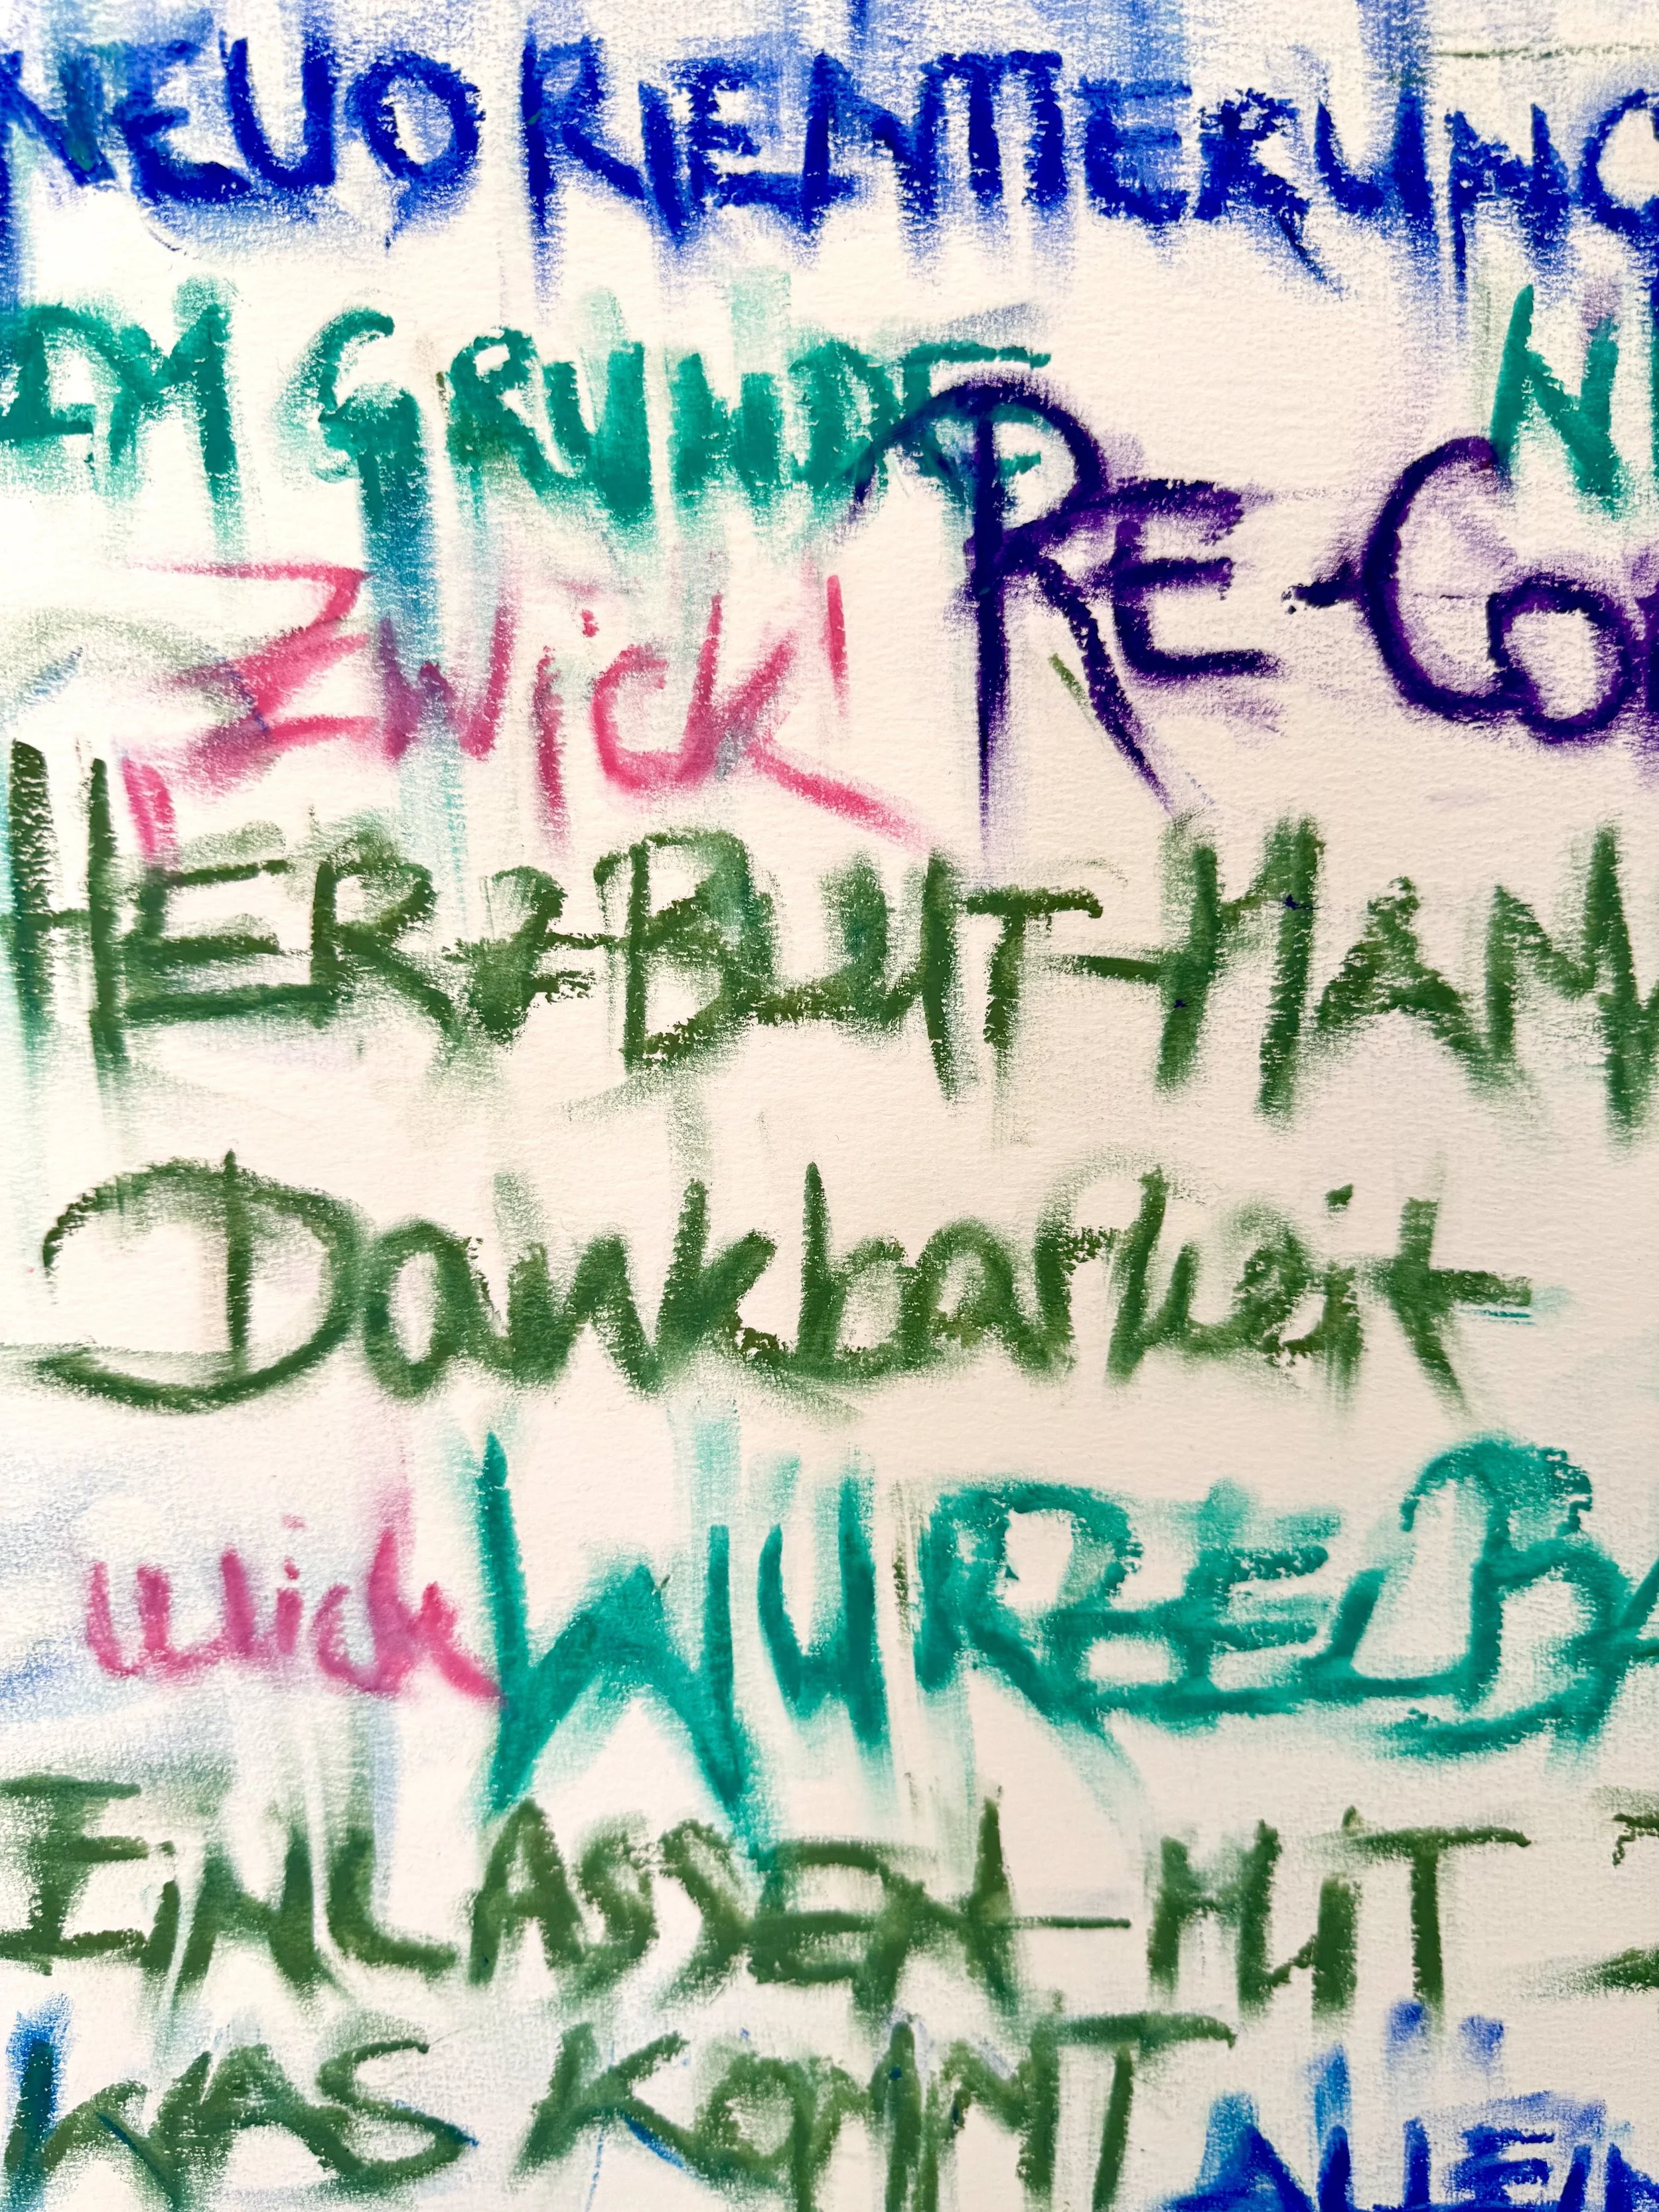 NEUORIENTIERUNG
IM GRUNDE N
Zwick! RE-CO
HERZBLUT-MAM
Dankbarkeit
WURZELBA
EINLASSEN-MIT
WAS KOMMT ALLEIN